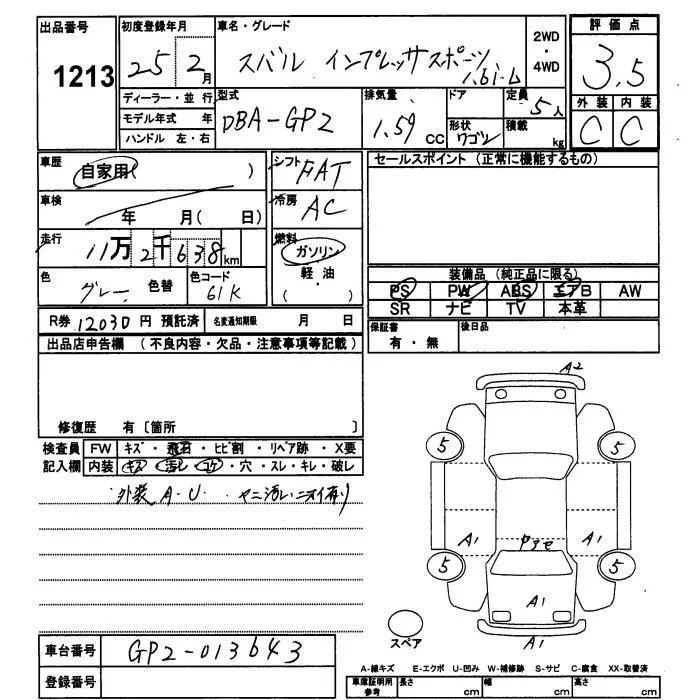 出品番号 1213
初度登録年月 25年 2月
車名・グレード スバル インプレッサスポーツ 1.6i-L
2WD・4WD
評価点 3.5
外装 C 内装 C
ディーラー・並行
モデル年式 年
ハンドル 左・右
型式 DBA-GP2
排気量 1.59 CC
ドア
形状 ワゴン
定員 5人
積載 kg
車歴 自家用( )
シフト FAT
セールスポイント (正常に機能するもの)
車検 年 月( 日)
冷房 AC
走行 11万2千638km
燃料 ガソリン・軽油・( )
色 グレー 色替 色コード 61K
装備品 (純正品に限る)
PS PW ABS エアB AW
SR ナビ TV 本革
R券 12030円 預託済 名変通知期限 月 日
保証書 有・無 後日品
出品店申告欄 (不良内容・欠品・注意事項等記載)
修復歴 有〔箇所 〕
検査員記入欄
FW キズ・飛石・ヒビ割・リペア跡・X要
内装 キズ・汚レ・コゲ・穴・スレ・キレ・破レ
外装 A-U. ヤニ汚レニオイ有り
A2
5 5
A1 A1
5 5
A1
スペア A1
車台番号 GP2-013643
登録番号
A-線キズ E-エクボ U-凹み W-補修跡 S-サビ C-腐食 XX-取替済
車庫証明用参考 長さ cm 幅 cm 高さ cm